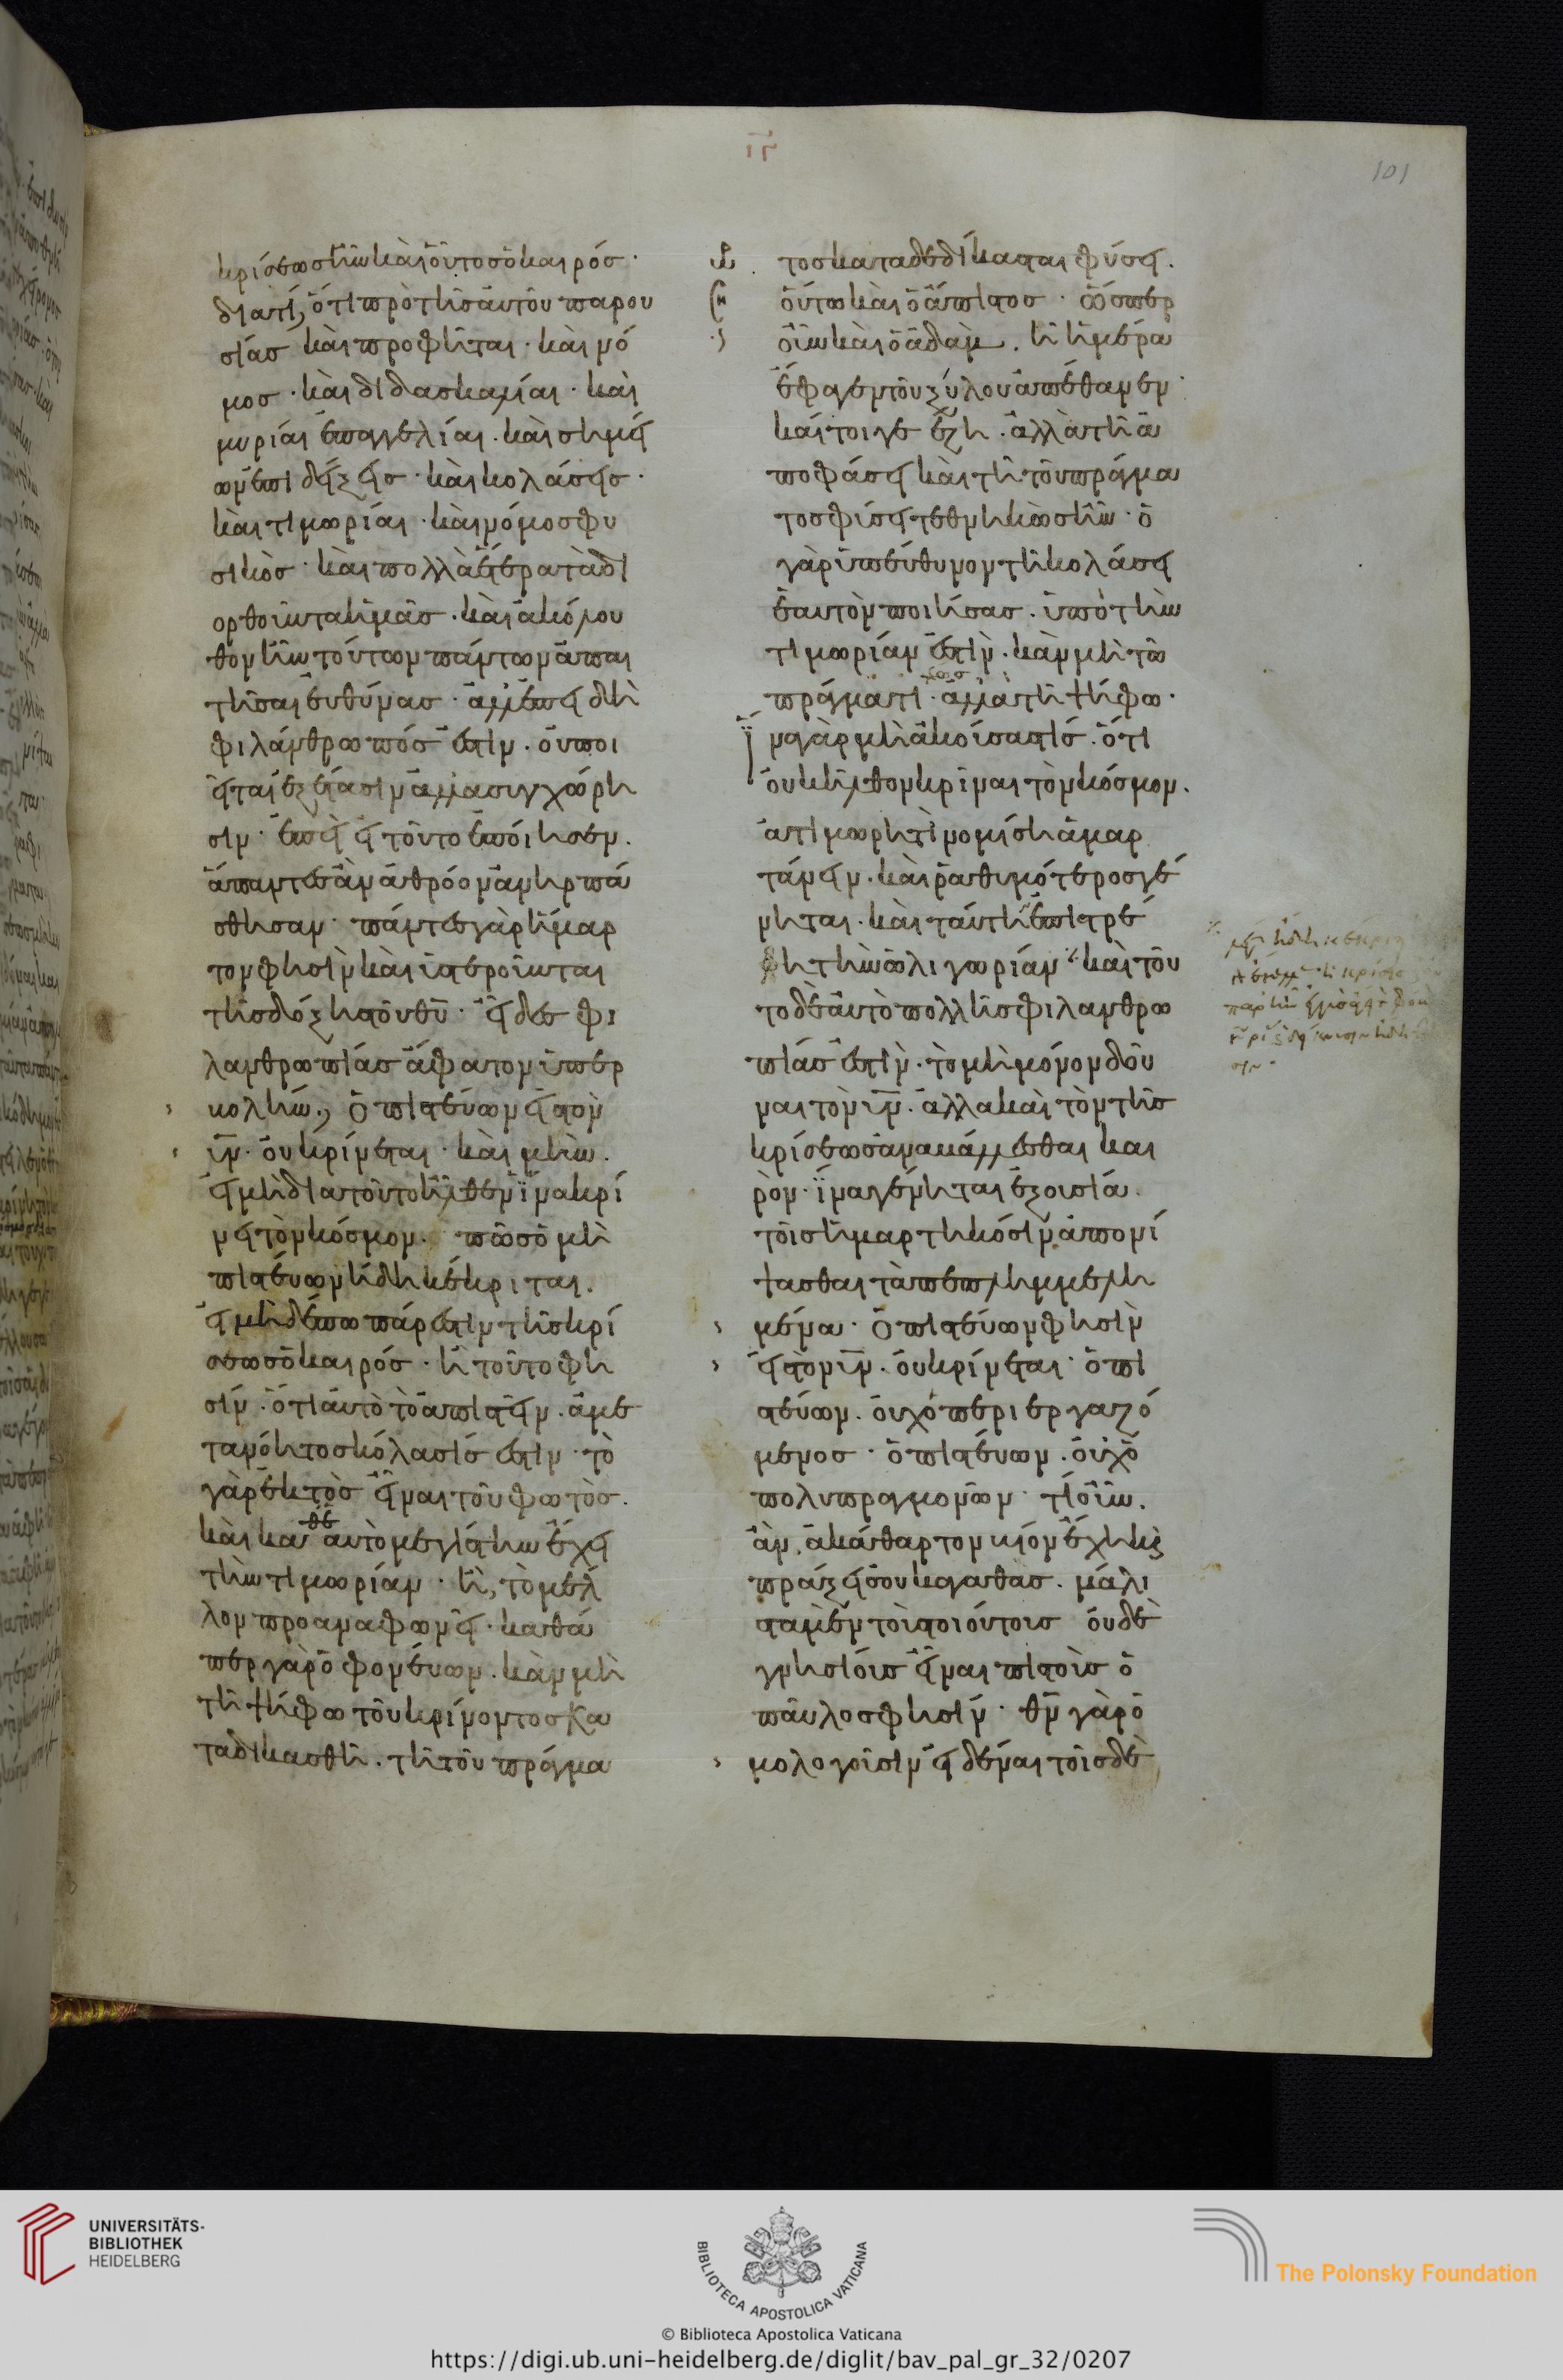 γι
101
κρίσεως ἦν καὶ οὗτος ὁ καιρός·
διατί, ὅτι πρὸ τῆς αὐτοῦ παρου
σίας καὶ προφῆται· καὶ νό
μος· καὶ διδασκαλίαι· καὶ
μυρίαι ἐπαγγελίαι. καὶ σημεί
ων ἐπιδείξεις· καὶ κολάσεις·
καὶ τιμωρίαι· καὶ νόμος φυ
σικὸς· καὶ πολλὰ ἕτερα τὰ δι
ορθοῦντα ἡμᾶς. καὶ ἀκόλου
θον ἦν τούτων πάντων ἀπαι
τῆσαι εὐθύνας· ἀλλ' ἐπειδὴ
φιλάνθρωπός ἐστιν. οὐ ποι
εῖται ἐξέτασιν ἀλλὰ συγχώρη
σιν· ἐπεὶ εἰ τοῦτο ἐποίησεν.
ἅπαντες ἂν ἀθρόον ἀνηρπά
σθησαν· πάντες γὰρ ἥμαρ
τον φησὶν καὶ ὑστεροῦνται
τῆς δόξης τοῦ θ̅υ̅· εἶδες φι
λανθρωπίας ἄφατον ὑπερ
βολήν; ὁ πιστεύων εἰς τὸν
υ̅ν̅· οὐ κρίνεται· καὶ μὴν.
εἰ μὴ διατοῦτο ἦλθεν ἵνα κρί
νει τὸν κόσμον. πῶς ὁ μὴ
πιστεύων ἤδη κέκριται.
εἰ μηδέπω πάρεστιν τῆς κρί
σεως ὁ καιρός· ἢ τοῦτο φη
σίν· ὅτι αὐτὸ τὸ ἀπιστεῖν. ἀμε
τανόητος κόλασίς ἐστιν· τὸ
γὰρ ἐκτὸς εἶναι τοῦ φωτὸς.
καὶ καθ' ἑαυτὸ μεγίστην ἔχει
τὴν τιμωρίαν· ἢ, τὸ μέλ
λον προαναφωνεῖ· καθά
περ γὰρ ὁ φονεύων. κἂν μὴ
τῆ ψήφω τοῦ κρίνοντος κα
ταδικασθῆ. τῆ τοῦ πράγμα
τος καταδεδίκασται φύσει.
οὕτω καὶ ὁ ἄπιστος· ὥσπερ
οὖν καὶ ὁ ἀδὰμ. ἧ ἡμέρα
ἔφαγεν τοῦ ξύλου ἀπέθανεν·
καίτοιγε ἔζη. ἀλλὰ τῆ ἀ
ποφάσει καὶ τῆ τοῦ πράγμα
τος φύσει τεθνηκὼς ἦν· ὁ
γὰρ ὑπεύθυνον τῆ κολάσει
ἑαυτὸν ποιήσας. ὑπὸ τὴν
τιμωρίαν ἐστὶν. κἂν μὴ τῶ
πράγματι· ἀλλὰ τῆ ψήφω·
ἵνα γὰρ μὴ ἀκούσας τίς. ὅτι
οὐκ ἦλθον κρῖναι τὸν κόσμον.
ἀτιμωρητὶ νομίση ἁμαρ
τάνειν. καὶ ῥαθυμότερος γέ
νηται. καὶ ταύτη ἐπιτρέ
ψη τὴν ὀλιγωρίαν· καὶ τοῦ
το δὲ αὐτὸ πολλῆς φιλανθρω
πίας ἐστὶν· τὸ μὴ μόνον δοῦ
ναι τὸν υ̅ν̅. ἀλλα καὶ τὸν τῆς
κρίσεως ἀναβάλλεσθαι και
ρὸν· ἵνα γένηται ἐξουσία.
τοῖς ἡμαρτηκόσιν ἀπονί
ψασθαι τὰ πεπλημμελη
μένα· ὁ πιστεύων φησὶν
εἰς τὸν υ̅ν̅. οὐ κρίνεται· ὁ πι
στεύων. οὐχ ὁ περιεργαζό
μενος· ὁ πιστεύων. οὐχ ὁ
πολυπραγμονῶν· τί οὖν.
ἂν ἀκάθαρτον βίον ἔχη κ̀
πράξεις οὐκ ἀγαθὰς. μάλι
στα μὲν τοὺς τοιούτους οὐδὲ
γνησίους εἶναι πιστοὺς ὁ
παῦλος φησίν· θ̅ν̅ γὰρ ὁ
μολογοῦσιν εἰδέναι τοῖς δὲ
UNIVERSITÄTS-
BIBLIOTHEK
HEIDELBERG
BIBLIOTECA APOSTOLICA VATICANA
The Polonsky Foundation
© Biblioteca Apostolica Vaticana
https://digi.ub.uni-heidelberg.de/diglit/bav_pal_gr_32/0207